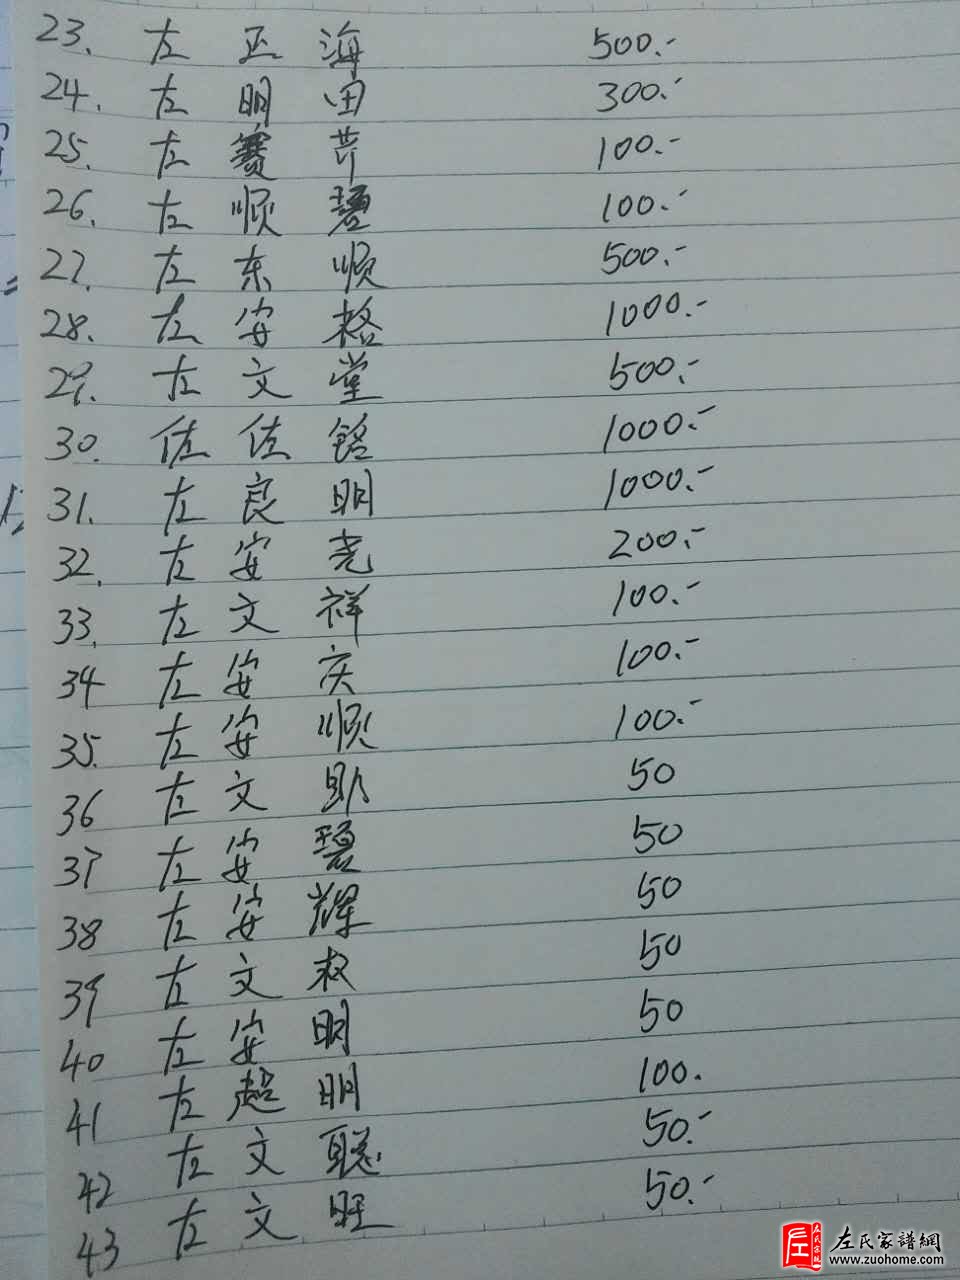 23. 左正海 500.-
24. 左明田 300.-
25. 左赛芹 100.-
26. 左顺碧 100.-
27. 左东顺 500.-
28. 左安格 1000.-
29. 左文堂 500.-
30. 佐佐铭 1000.-
31. 左良明 1000.-
32. 左安尧 200.-
33. 左文祥 100.-
34 左安庆 100.-
35. 左安顺 100.-
36 左文 50
37 左安碧 50
38 左安辉 50
39 左文权 50
40 左安明 50
41 左超明 100.
42 左文聪 50.-
43 左文旺 50.-
左氏家譜網
www.zuohome.com